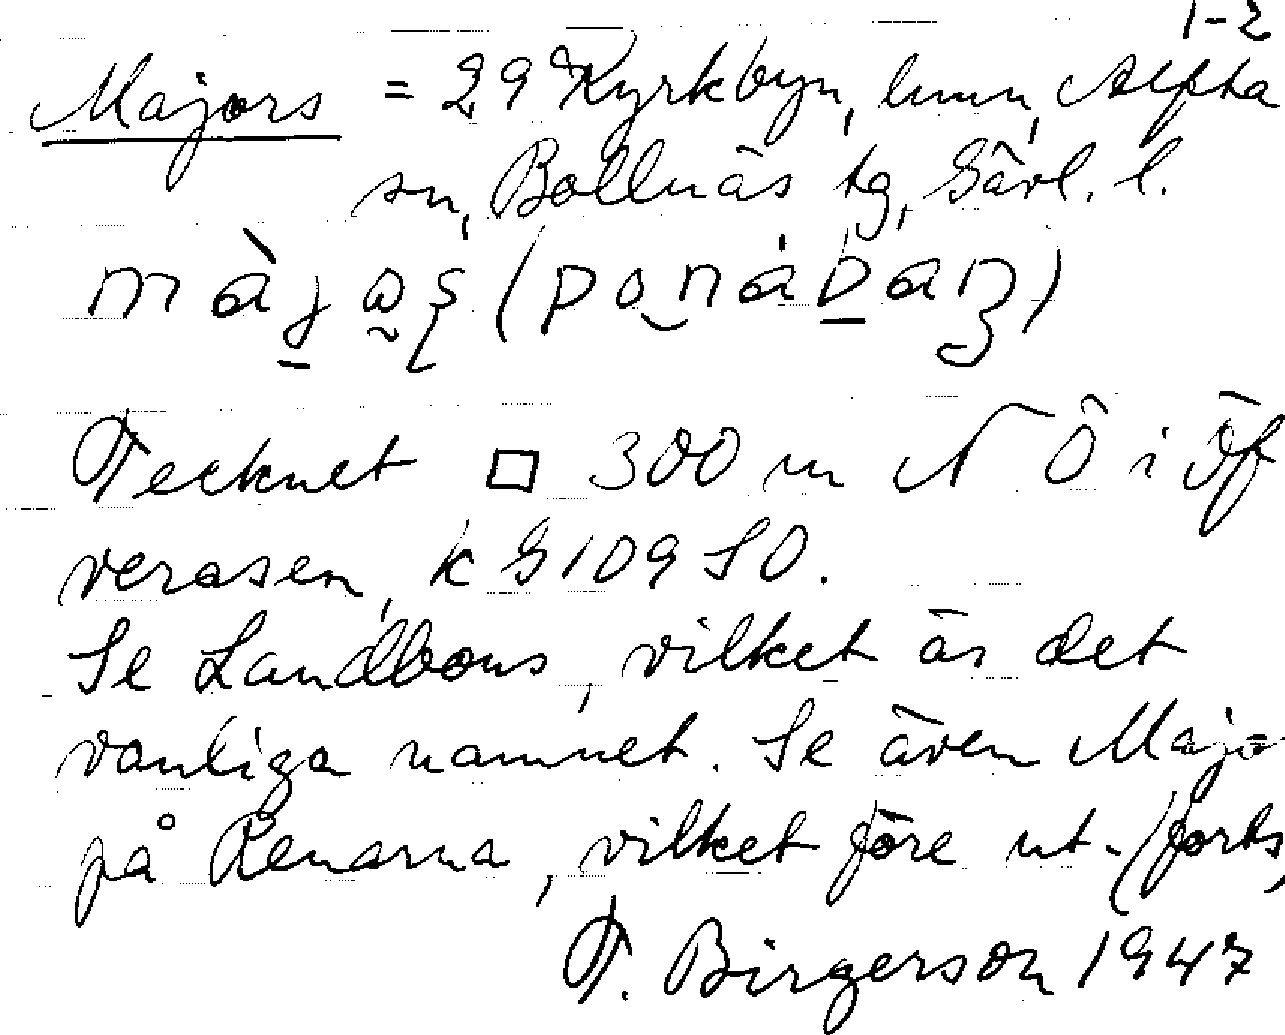 1-2
Majors = 29 Kyrkbyn, hmn, Alfta
sn, Bollnäs tg, Gävl. l.
màjas (ponábaŋ)
Tecknet □ 300 m N Ö i Öf
verasen, k G 109 SO.
Se Landbons, vilket är det
vanliga namnet. Se även Maj=
på Renarna, vilket före ut- (forts,
T. Birgerson 1947